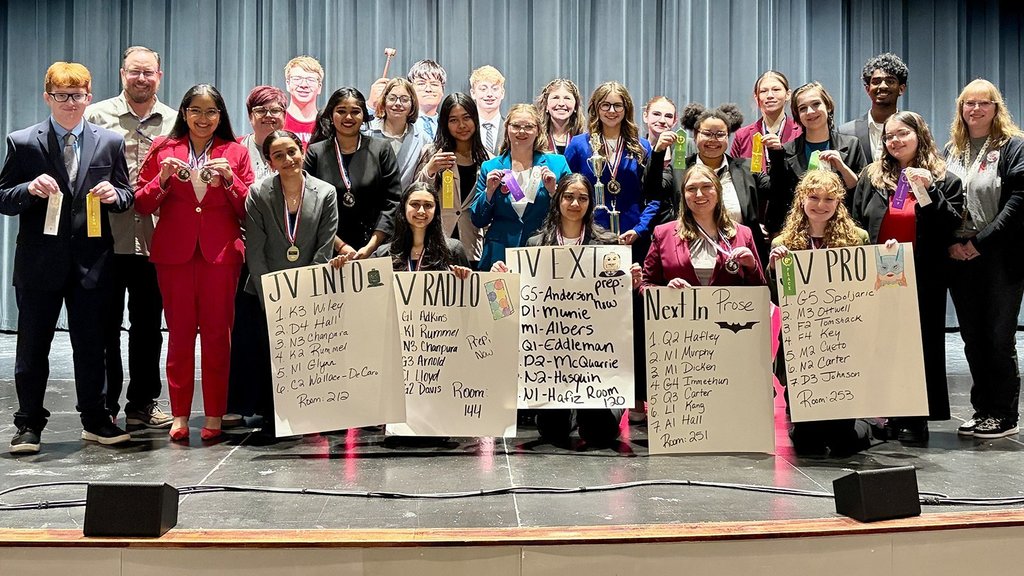 JV INFO
1 K3 Wiley
2. D4 Hall
3. N3 Chanpara
4. K2 Rummel
5. N1 Glynn
6. C2 Wallace-DeCaro
Room: 212
V RADIO
G1 Adkins
K1 Rummel
N3 Chanpura
G3 Arnold
Lloyd
G2 Davis
Prep: Now
Room: 144
JV EXT
prep: now
G5-Anderson
D1-Mumie
M1-Albers
Q1-Eddleman
D2-McQuarrie
N2-Hasquin
N1-Hafiz Room 120
Next In Prose
1. Q2 Haffey
2. N1 Murphy
3. M1 Dicken
4 G4 Immethun
5. Q3 Carter
6. L1 Kang
7. A1 Hall
Room: 251
JV PRO
1. G5 Spoljaric
2. M3 Ottwell
3. F2 Tomshack
4. F4 Key
5. M2 Cueto
6. N2 Carter
7. D3 Johnson
Room: 253